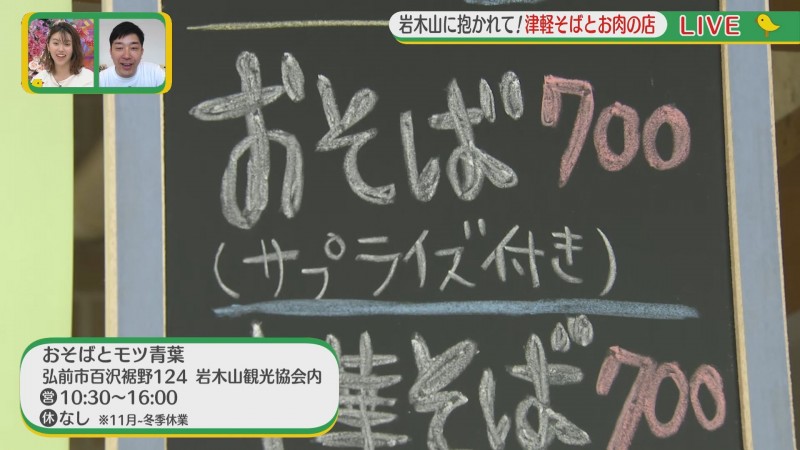 岩木山に抱かれて!津軽そばとお肉の店
LIVE
おそば 700
(サプライズ付き)
そば 700
おそばとモツ青葉
弘前市百沢裾野124 岩木山観光協会内
営10:30〜16:00
休なし ※11月-冬季休業